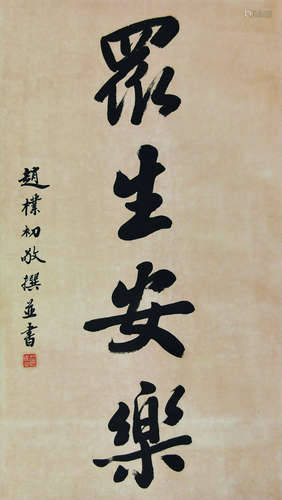 眾生安樂
趙樸初敬撰並書